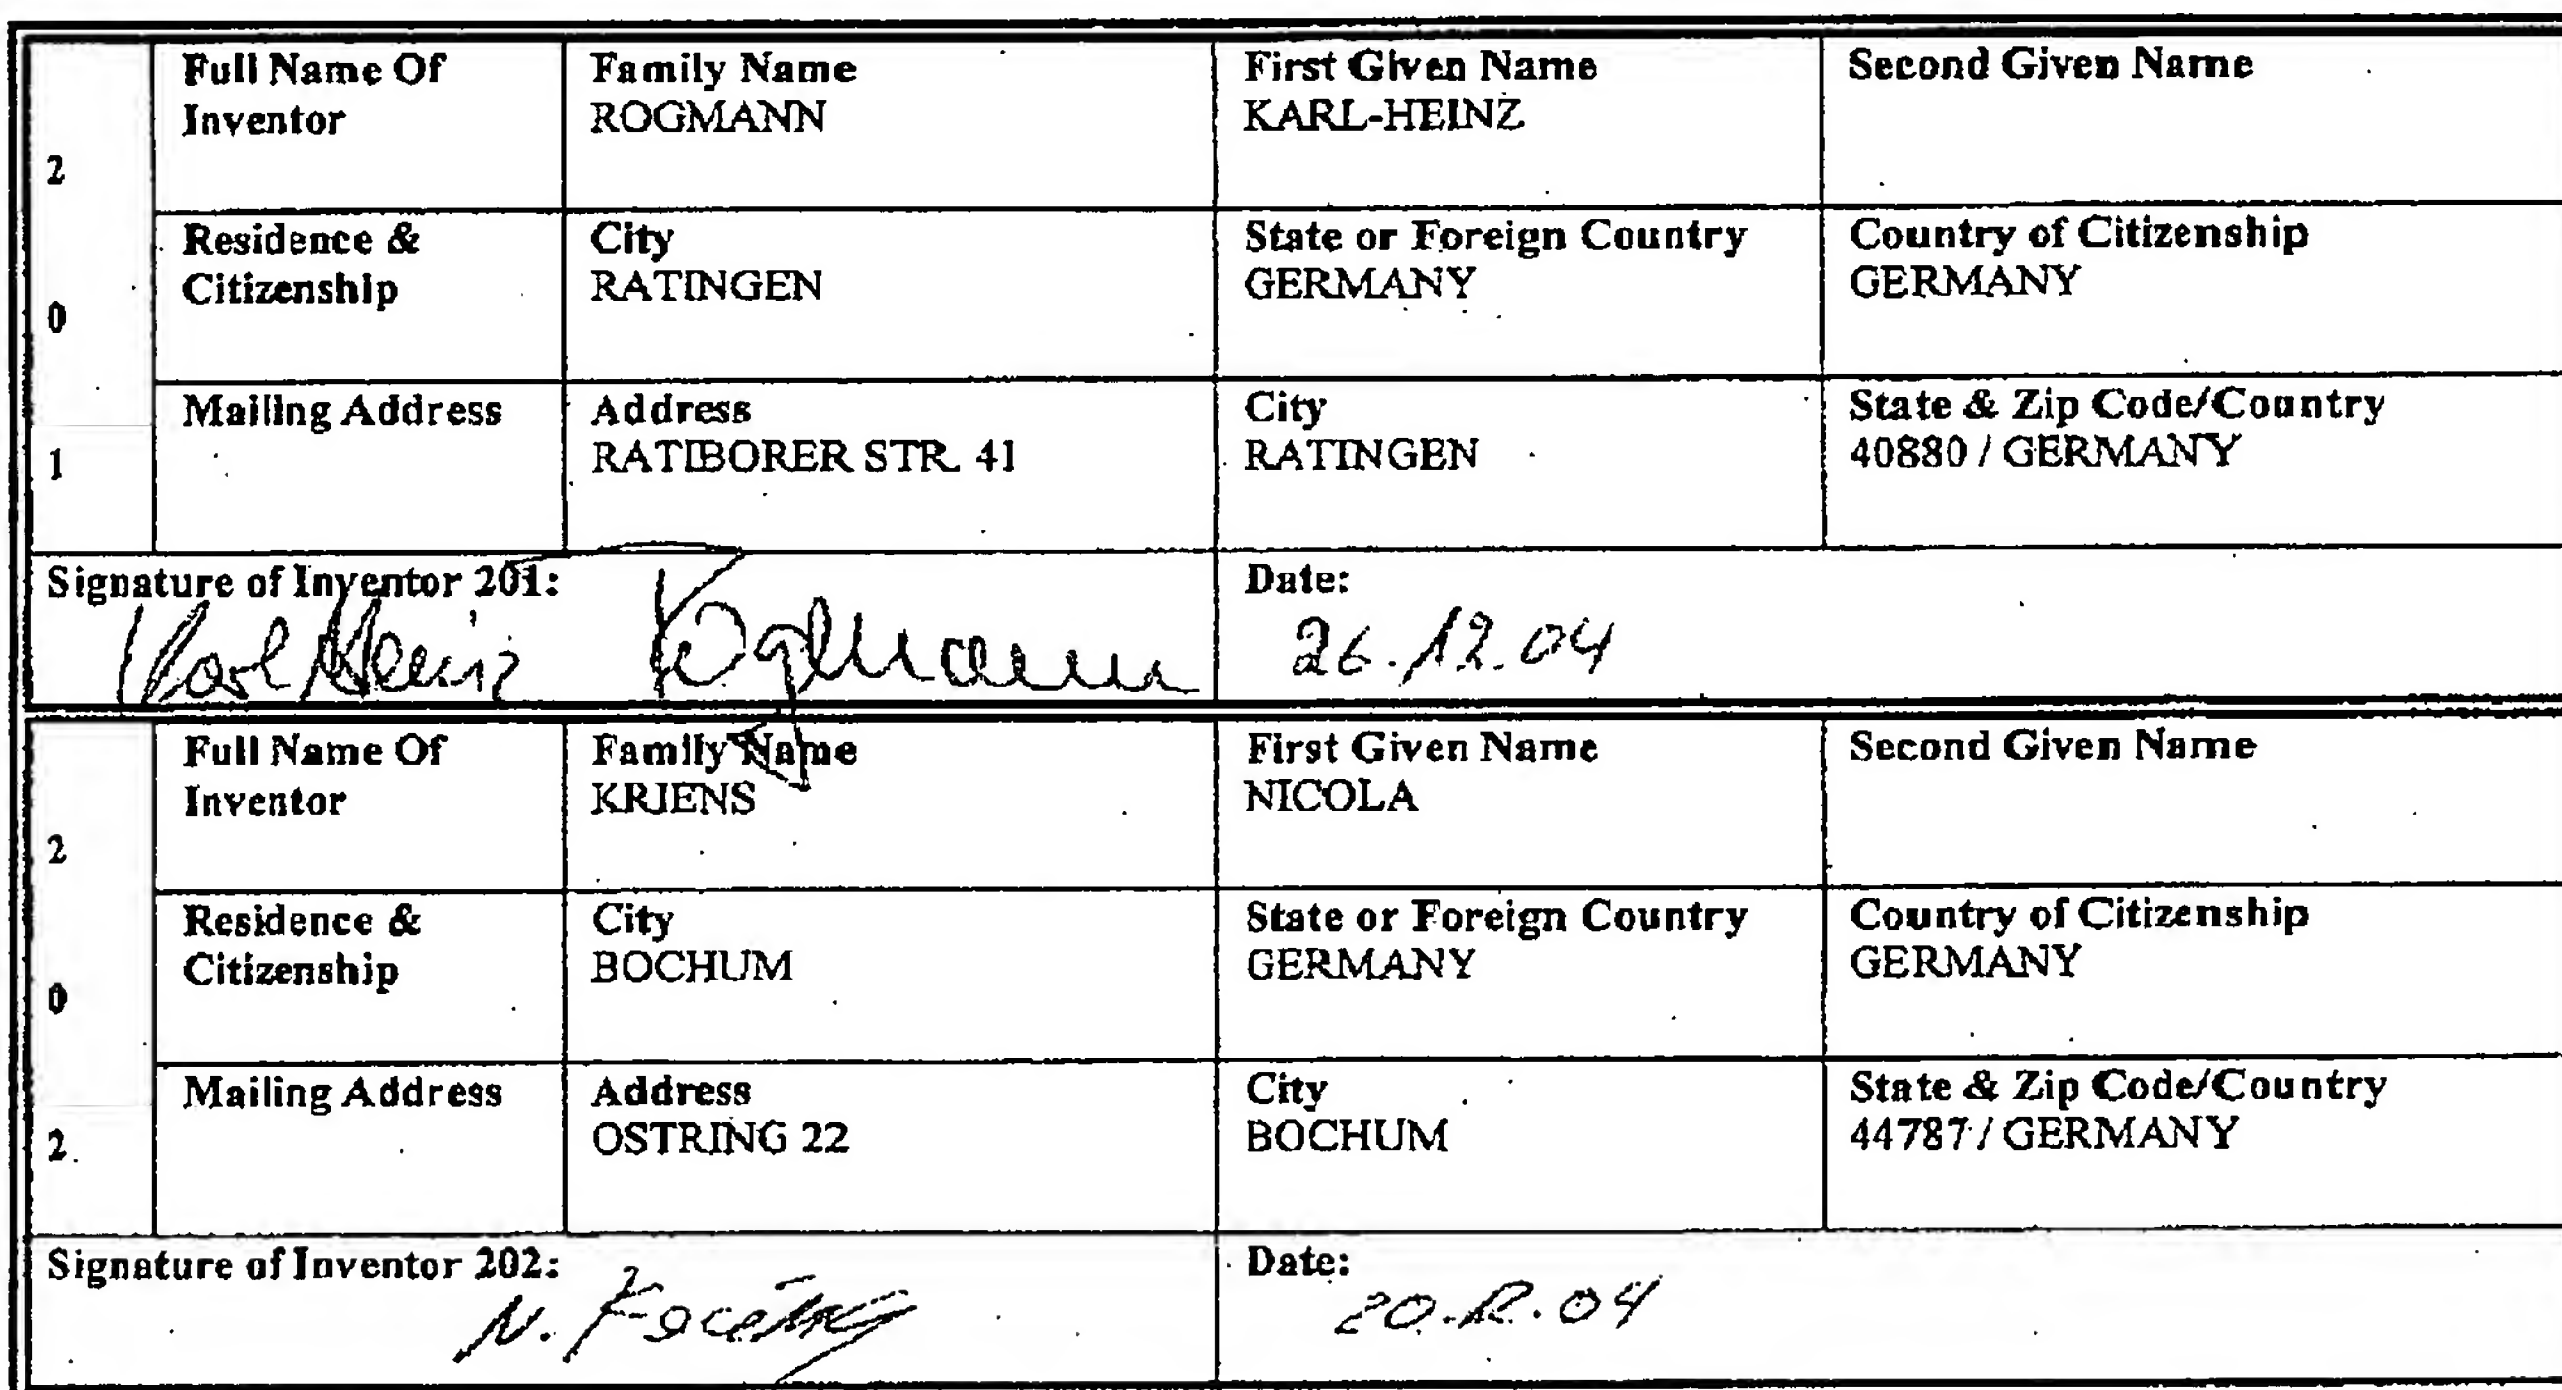 Full Name Of Inventor
Family Name
ROGMANN
First Given Name
KARL-HEINZ
Second Given Name
Residence & Citizenship
City
RATINGEN
State or Foreign Country
GERMANY
Country of Citizenship
GERMANY
Mailing Address
Address
RATIBORER STR. 41
City
RATINGEN
State & Zip Code/Country
40880 / GERMANY
2
0
1
Signature of Inventor 201:
Karl Heinz Rogmann
Date:
26.12.04
Full Name Of Inventor
Family Name
KRIENS
First Given Name
NICOLA
Second Given Name
Residence & Citizenship
City
BOCHUM
State or Foreign Country
GERMANY
Country of Citizenship
GERMANY
Mailing Address
Address
OSTRING 22
City
BOCHUM
State & Zip Code/Country
44787 / GERMANY
2
0
2
Signature of Inventor 202:
N.
Date:
20.12.04